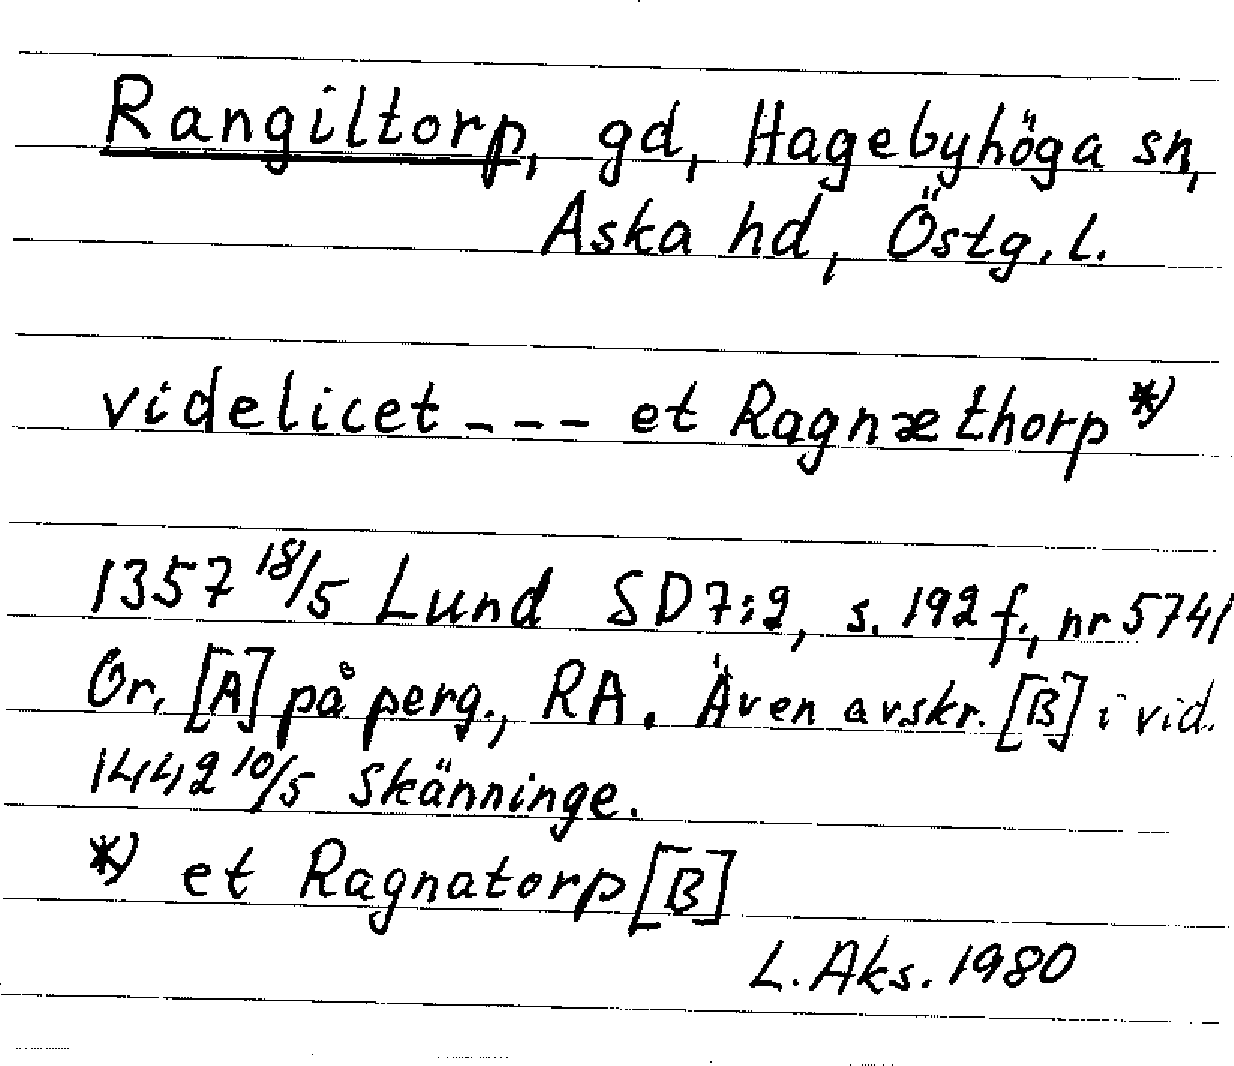 Rangiltorp, gd, Hagebyhöga sn,
Aska hd, Östg. l.
videlicet --- et Ragnæthorp *)
1357 18/5 Lund SD 7:2, s. 192 f., nr 5741
Or. [A] på perg., RA. Även avskr. [B] i vid.
1442 10/5 Skänninge.
*) et Ragnatorp [B]
L. Aks. 1980